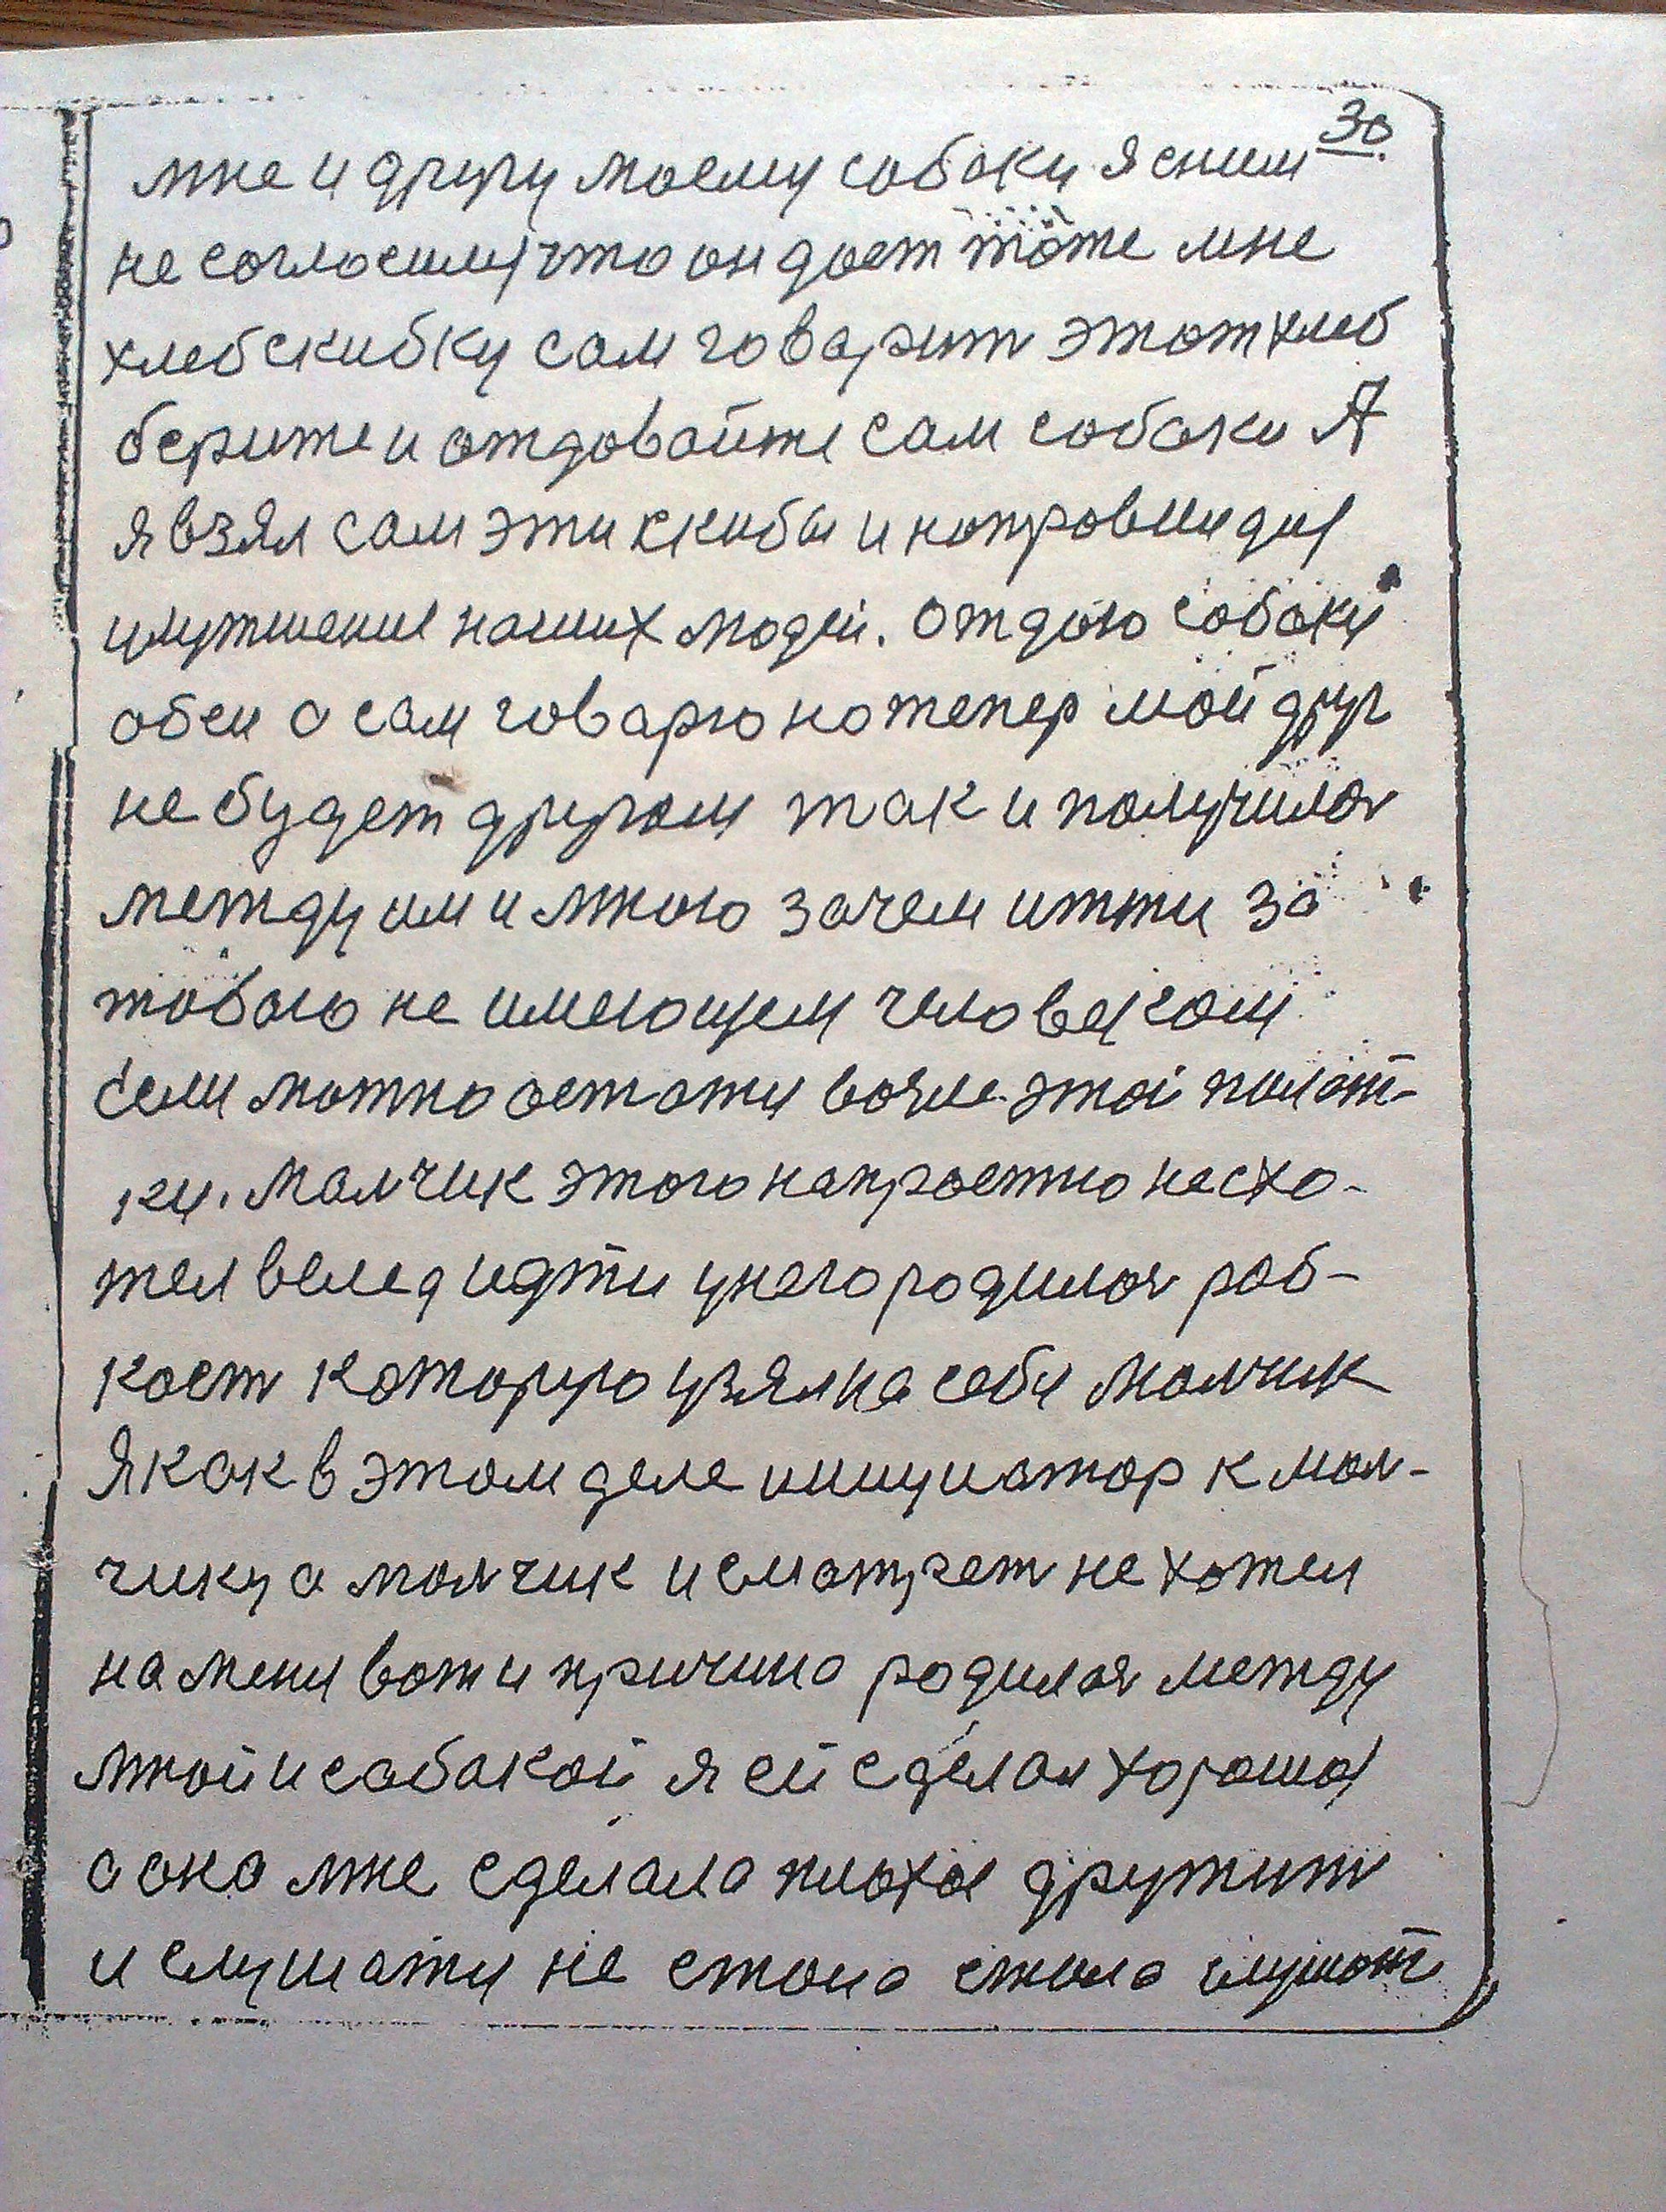 30
мне и другу моему собаки я сним
не согласился что он дает тоже мне
хлеб скибку сам говарит этот хлеб
берите и отдовайте сам собаки А
я взял сам эти скибы и направил для
улутшение наших людей. Отдою собаки
обеи а сам говарю но тепер мой друг
не будет другом так и получилоя
между им и мною зачем итти за
тобою не имеющем человеком
если можно остати возле этой полат-
ки. Малчик этого напростно не схо-
тел вслед идти у него родилоя роб-
кост которую узял на себя малчик
Я как в этом деле инициатор к мал-
чику а малчик и сматрет не хотел
на меня вот и причина родилоя между
мной и собакой я ей сделал хорошое
а она мне сделала плохое дружит
и слушати не стала стала слушат